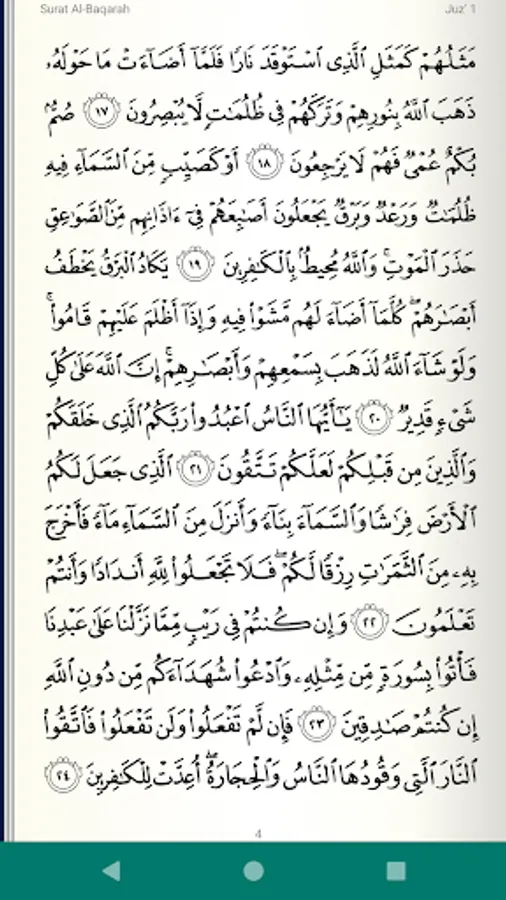 Surat Al-Baqarah
Juz' 1
مَثَلُهُمْ كَمَثَلِ ٱلَّذِى ٱسْتَوْقَدَ نَارًا فَلَمَّآ أَضَآءَتْ مَا حَوْلَهُۥ
ذَهَبَ ٱللَّهُ بِنُورِهِمْ وَتَرَكَهُمْ فِى ظُلُمَٰتٍ لَّا يُبْصِرُونَ ١٧ صُمٌّۢ
بُكْمٌ عُمْىٌ فَهُمْ لَا يَرْجِعُونَ ١٨ أَوْ كَصَيِّبٍ مِّنَ ٱلسَّمَآءِ فِيهِ
ظُلُمَٰتٌ وَرَعْدٌ وَبَرْقٌ يَجْعَلُونَ أَصَٰبِعَهُمْ فِىٓ ءَاذَانِهِم مِّنَ ٱلصَّوَٰعِقِ
حَذَرَ ٱلْمَوْتِ ۚ وَٱللَّهُ مُحِيطٌۢ بِٱلْكَٰفِرِينَ ١٩ يَكَادُ ٱلْبَرْقُ يَخْطَفُ
أَبْصَٰرَهُمْ ۖ كُلَّمَآ أَضَآءَ لَهُم مَّشَوْا۟ فِيهِ وَإِذَآ أَظْلَمَ عَلَيْهِمْ قَامُوا۟ ۚ
وَلَوْ شَآءَ ٱللَّهُ لَذَهَبَ بِسَمْعِهِمْ وَأَبْصَٰرِهِمْ ۚ إِنَّ ٱللَّهَ عَلَىٰ كُلِّ
شَىْءٍ قَدِيرٌ ٢٠ يَٰٓأَيُّهَا ٱلنَّاسُ ٱعْبُدُوا۟ رَبَّكُمُ ٱلَّذِى خَلَقَكُمْ
وَٱلَّذِينَ مِن قَبْلِكُمْ لَعَلَّكُمْ تَتَّقُونَ ٢١ ٱلَّذِى جَعَلَ لَكُمُ
ٱلْأَرْضَ فِرَٰشًا وَٱلسَّمَآءَ بِنَآءً وَأَنزَلَ مِنَ ٱلسَّمَآءِ مَآءً فَأَخْرَجَ
بِهِۦ مِنَ ٱلثَّمَرَٰتِ رِزْقًا لَّكُمْ ۖ فَلَا تَجْعَلُوا۟ لِلَّهِ أَندَادًا وَأَنتُمْ
تَعْلَمُونَ ٢٢ وَإِن كُنتُمْ فِى رَيْبٍ مِّمَّا نَزَّلْنَا عَلَىٰ عَبْدِنَا
فَأْتُوا۟ بِسُورَةٍ مِّن مِّثْلِهِۦ وَٱدْعُوا۟ شُهَدَآءَكُم مِّن دُونِ ٱللَّهِ
إِن كُنتُمْ صَٰدِقِينَ ٢٣ فَإِن لَّمْ تَفْعَلُوا۟ وَلَن تَفْعَلُوا۟ فَٱتَّقُوا۟
ٱلنَّارَ ٱلَّتِى وَقُودُهَا ٱلنَّاسُ وَٱلْحِجَارَةُ ۖ أُعِدَّتْ لِلْكَٰفِرِينَ ٢٤
4